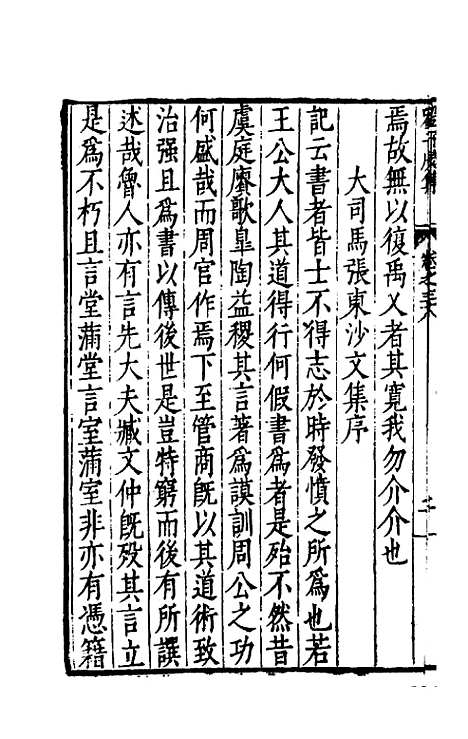 焉故無以復禹乂者其寬我勿介介也
大司馬張東沙文集序
記云書者皆士不得志於時發憤之所為也若
王公大人其道得行何假書為者是殆不然昔
虞庭賡歌臯陶益稷其言著為謨訓周公之功
何盛哉而周官作焉下至管商旣以其道術致
治强且為書以傳後世是豈特窮而後有所譔
述哉魯人亦有言先大夫臧文仲旣歿其言立
是爲不朽且言堂蒲堂言室蒲室非亦有憑籍